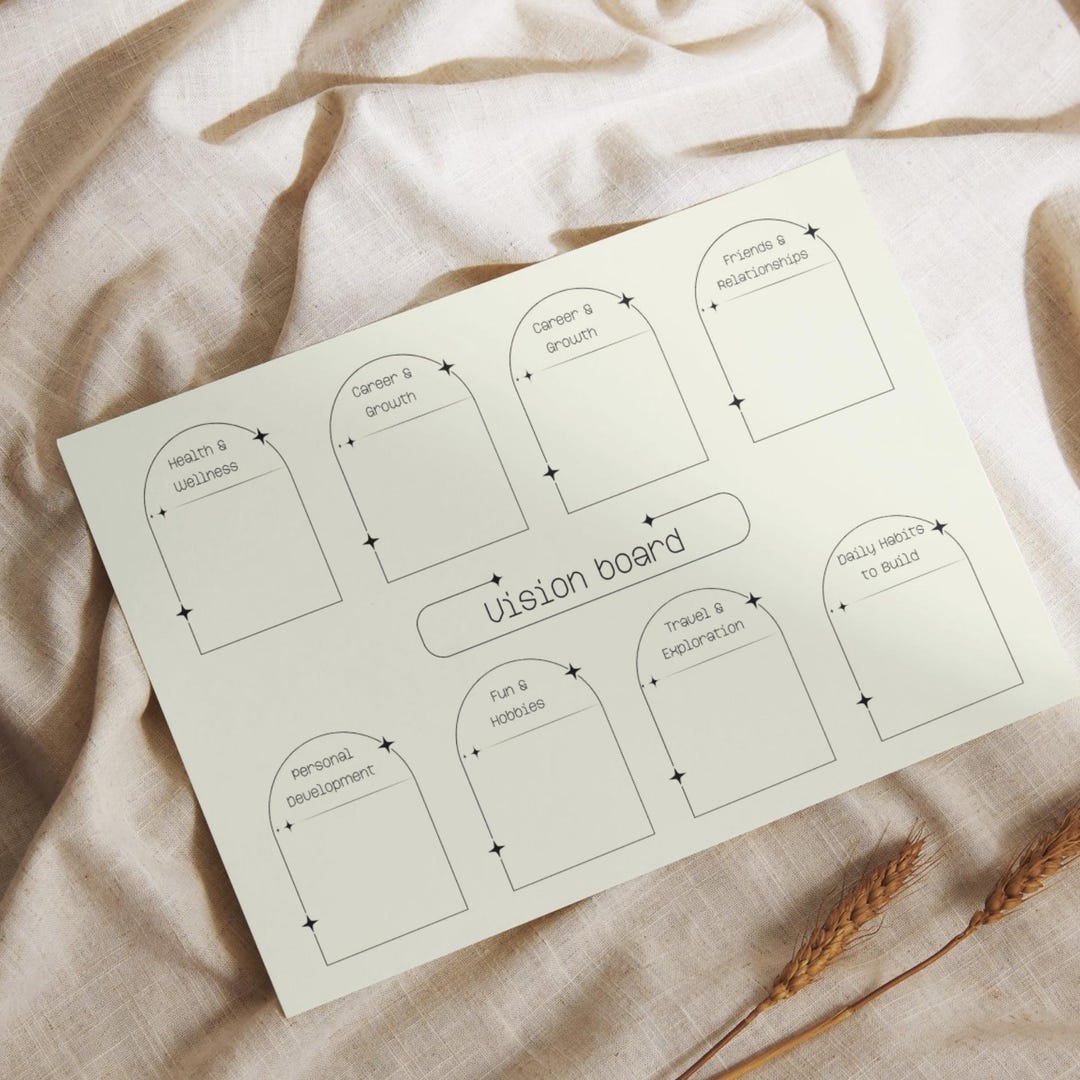 Health &
Wellness
Career &
Growth
Career &
Growth
Friends &
Relationships
Vision board
Personal
Development
Fun &
Hobbies
Travel &
Exploration
Daily Habits
to Build